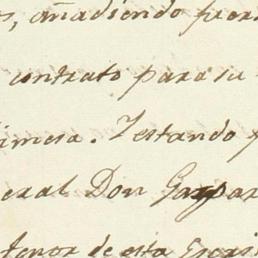 s, añadiendo fuer
contrato para su
imera. Y estando p
eral Don Gaspar
tenor de esta Escri